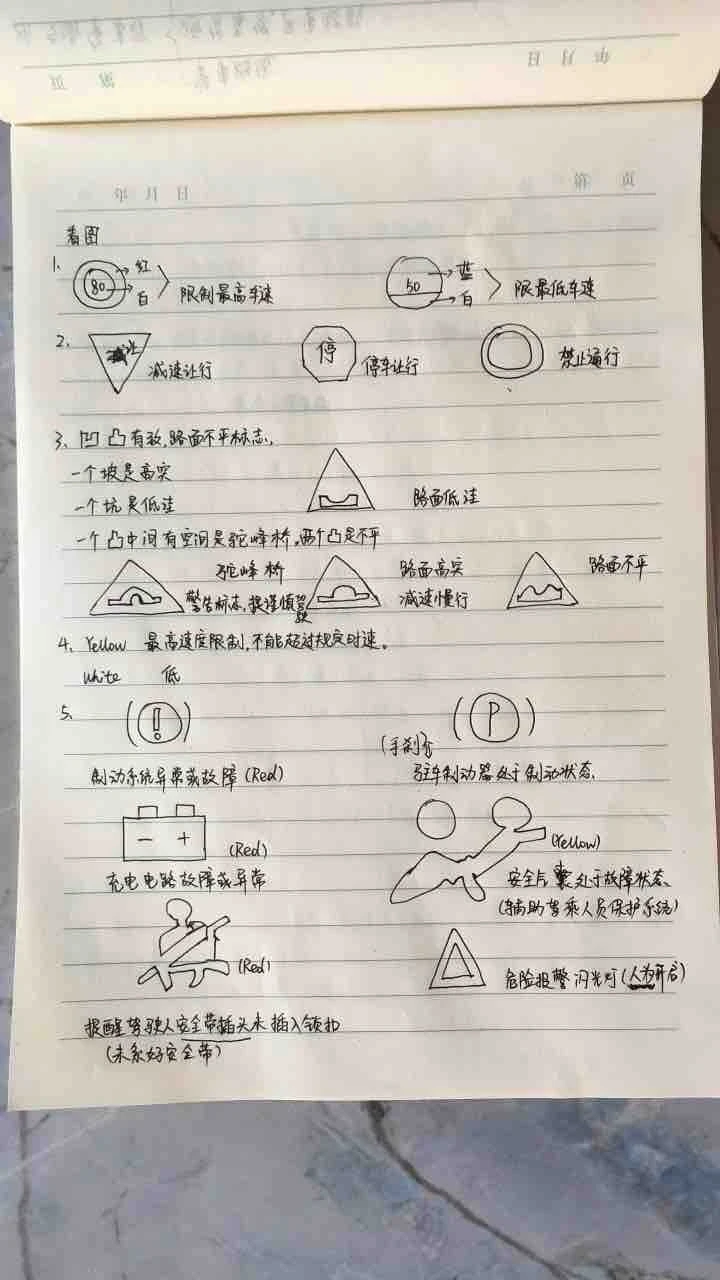 年 月 日
第 页
看图
1. 80 红 白 限制最高车速 50 蓝 白 限最低车速
2. 减让 减速让行 停 停车让行 禁止通行
3. 凹凸有致,路面不平标志,
一个坡是高突
一个坑是低洼 路面低洼
一个凸中间有空间是驼峰桥,两个凸是不平
驼峰桥 路面高突 路面不平
警告标志,提谨慎驾驶 减速慢行
4. Yellow 最高速度限制,不能超过规定时速。
White 低
5. (!) (P)
(手刹)
制动系统异常或故障 (Red) 驻车制动器处于制动状态.
- + (Red) (Yellow)
充电电路故障或异常 安全气囊处于故障状态.
(辅助驾乘人员保护系统)
(Red) 危险报警闪光灯(人为开启)
提醒驾驶人安全带插头未插入锁扣
(未系好安全带)